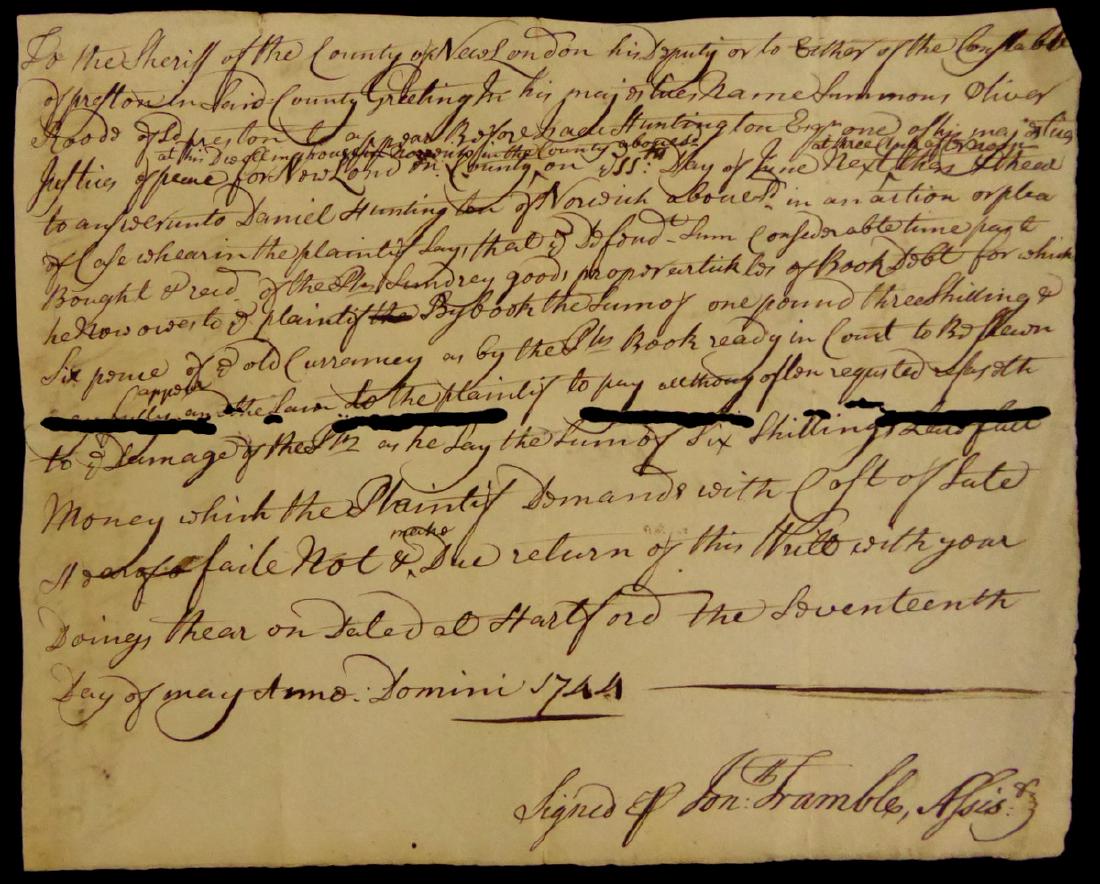 To the Sheriff of the County of New London his Deputy or to Either of the Constable
of preston in Said County Greeting In his majesties Name Summons Oliver
Roode of sd preston to appear Before Isaac Huntington Esqr one of his majesties
at his Dwelling house in Norwich in the County abovesd at three Clock afternoon
Justices of peace for New London County, on ye 11th Day of June Next then & thear
to answer unto Daniel Huntington of Norwich abovesd in an action or plea
of Case whearin the plaintif Says that ye Defendt Sum Considerable time past
Bought & recd of the Plts Sundrey goods proper artickles of Book Debt for which
he Now owes to ye plaintif the By book the Sum of one pound three Shilling &
Six pence of ye old Currancey as by the Plts Book ready in Court to Be Shewn
appear
the Same to the plaintif to pay all thoug often requsted
to ye Damage of the Plts as he Say the Sum of Six Shillings Lawfull
Money which the Plaintif Demands with Cost of Sute
hearof faile Not & Due return of this Writt with your
make
Doings thear on Dated at Hartford the Seventeenth
Day of may Anno: Domini 1744
Signed Jonth: Trumble, Assist